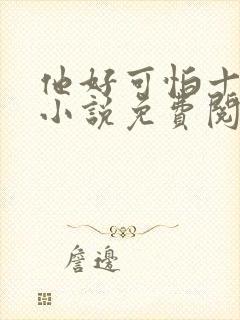 他好可怕十
小說免費閱
詹邊